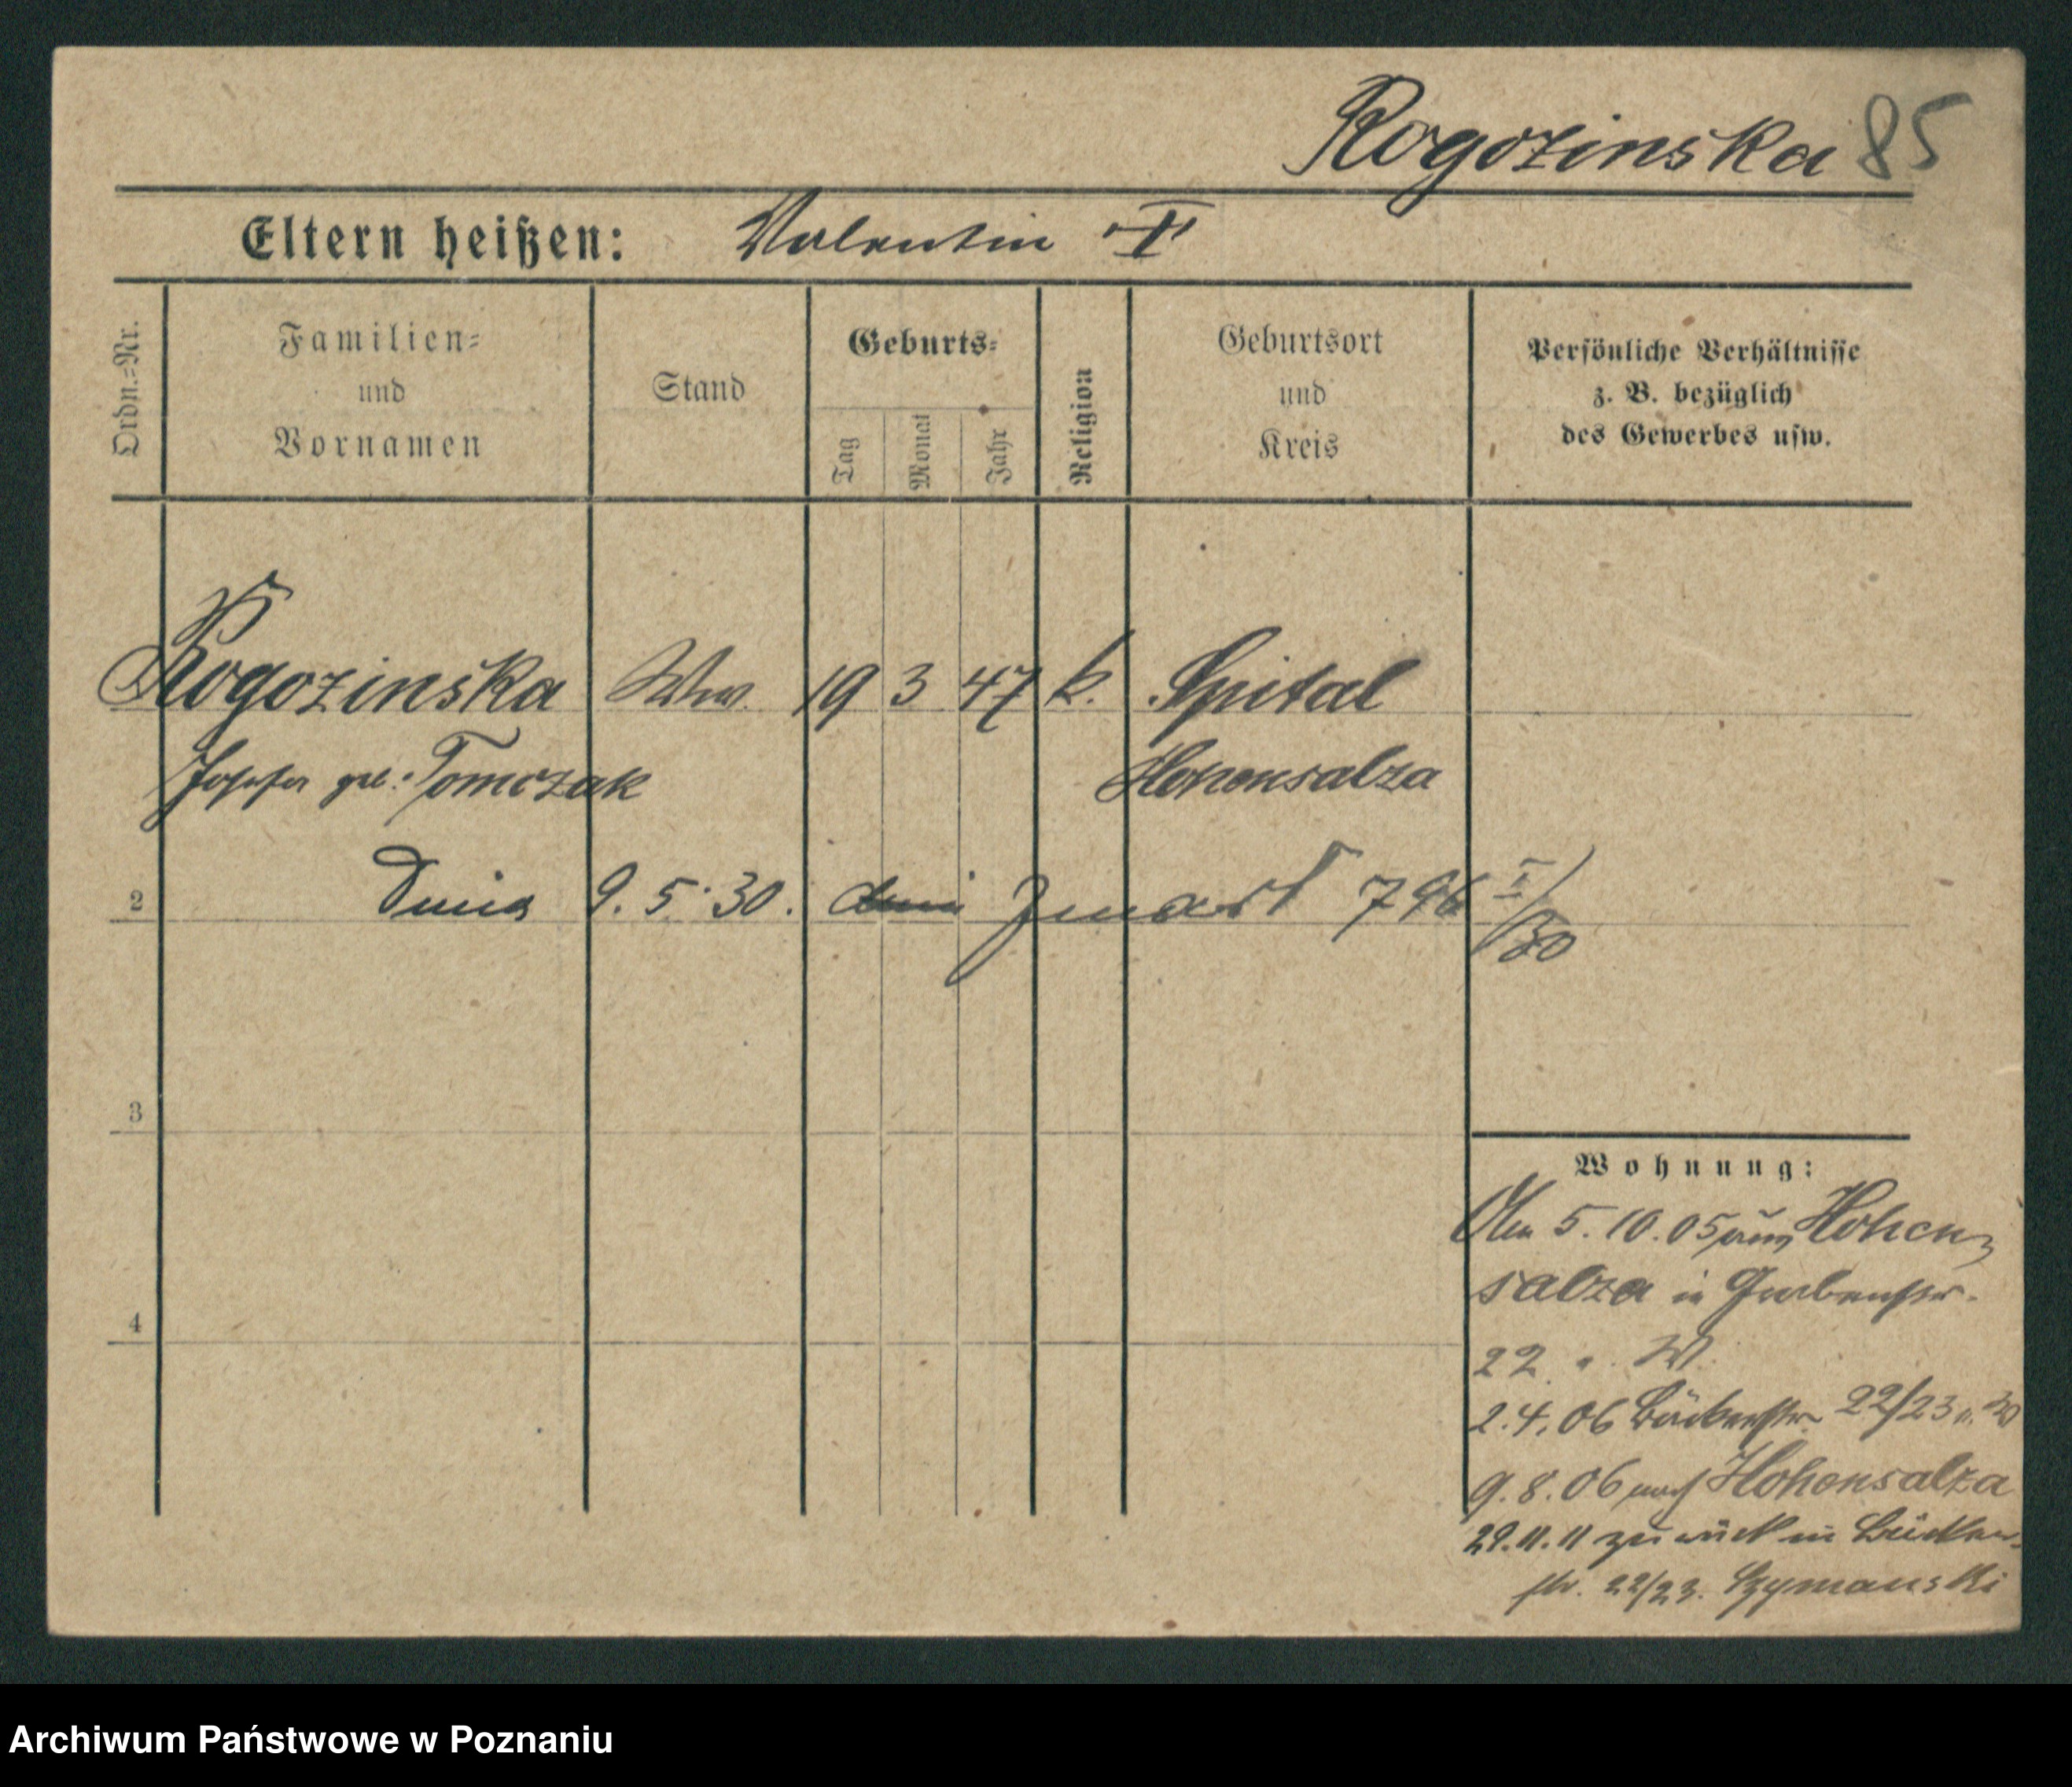 Rogozinska 85
Eltern heißen: Valentin
Ordn.=Nr.
Familien=
und
Vornamen
Stand
Geburts=
Tag
Monat
Jahr
Religion
Geburtsort
und
Kreis
Persönliche Verhältnisse
z. B. bezüglich
des Gewerbes usw.
Rogozinska Ww. 19 3 47 k. Spital
Josefa geb. Tomczak Hohensalza
2 Dnia 9. 5. 30. zmarł 796 I/30
3
4
Wohnung:
Am 5.10.05 aus Hohen=
salza in Grabenstr.
22
2.4.06 Bäckerstr. 22/23
9.8.06 nach Hohensalza
29.11.11 zurück in Bäcker=
str. 22/23. Szymanski
Archiwum Państwowe w Poznaniu